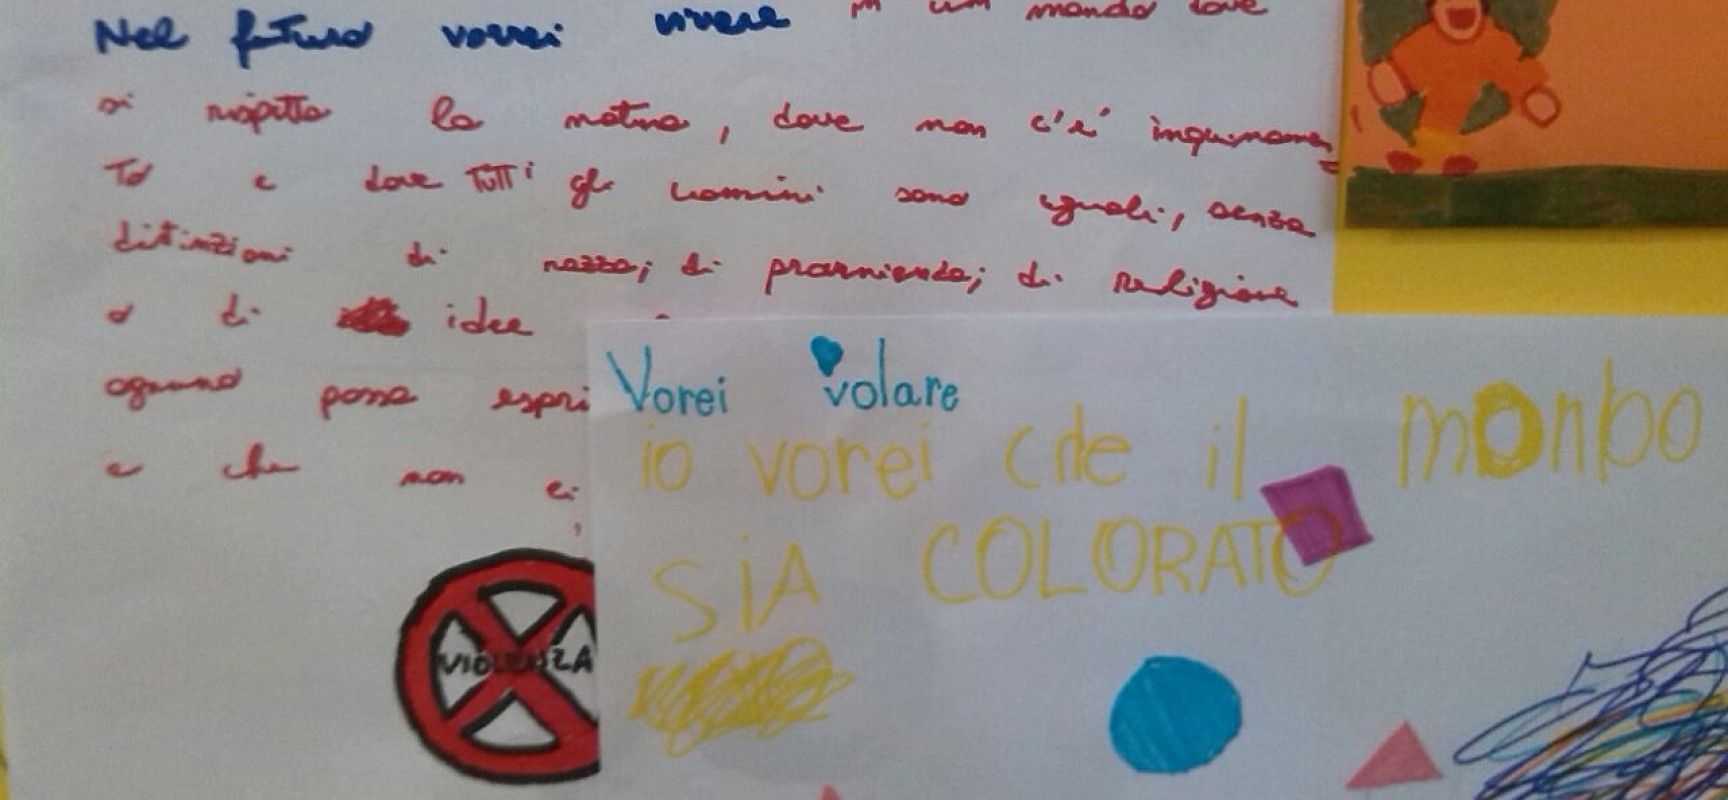 Nel futuro vorrei vivere in un mondo dove
si rispetta la natura, dove non c'e' inquinamen
to e dove tutti gli uomini sono uguali, senza
ditinzioni di razza; di provenienza; di religione
o di idee
ognuno possa espri
e che non ci
VIOLENZA
Vorei volare
io vorei che il monbo
SiA COLORATO